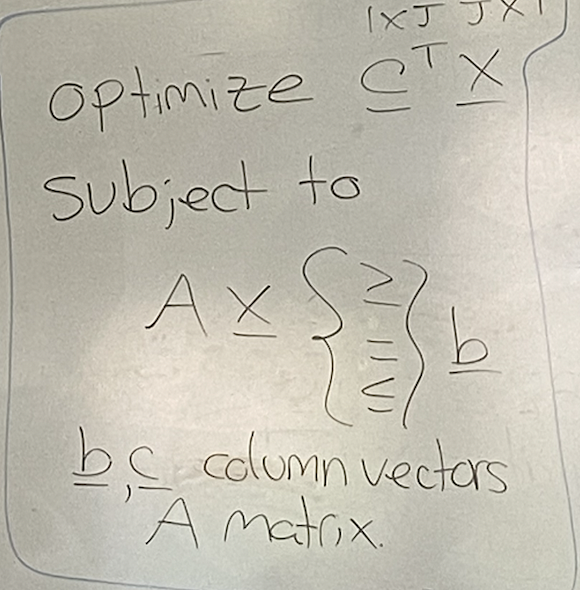 1×J J×1
optimize c^T x
subject to
A x { ≥ = ≤ } b
b, c column vectors
A matrix.